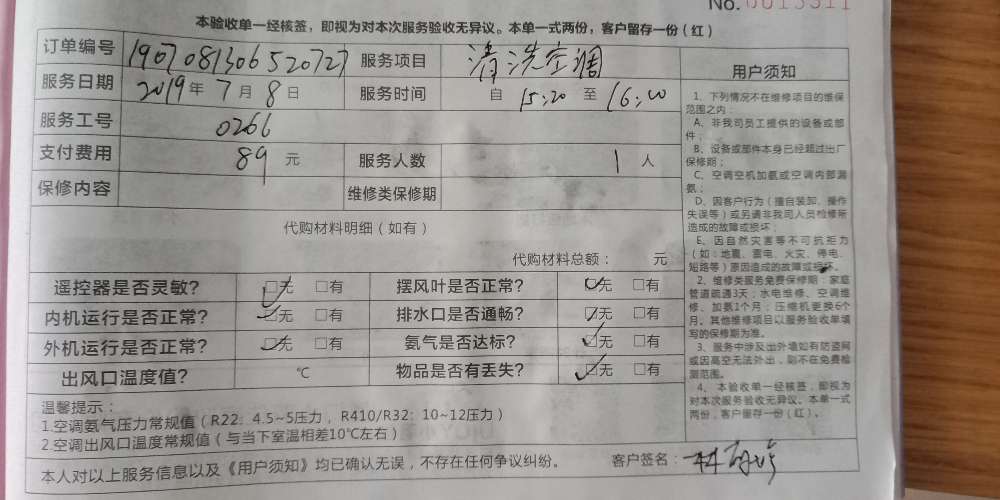 No. 0015311
本验收单一经核签，即视为对本次服务验收无异议。本单一式两份，客户留存一份（红）
订单编号 190708130652072 服务项目 清洗空调
服务日期 2019年7月8日 服务时间 自 15:20 至 16:20
服务工号 0266
支付费用 89 元 服务人数 1 人
保修内容 维修类保修期
代购材料明细（如有）
代购材料总额： 元
遥控器是否灵敏? □无 □有 摆风叶是否正常? □无 □有
内机运行是否正常? □无 □有 排水口是否通畅? □无 □有
外机运行是否正常? □无 □有 氨气是否达标? □无 □有
出风口温度值? ℃ 物品是否有丢失? □无 □有
温馨提示：
1.空调氨气压力常规值（R22：4.5~5压力，R410/R32：10~12压力）
2.空调出风口温度常规值（与当下室温相差10℃左右）
本人对以上服务信息以及《用户须知》均已确认无误，不存在任何争议纠纷。 客户签名：
用户须知
1、下列情况不在维修项目的维保
范围之内：
A、非我司员工提供的设备或部
件；
B、设备或部件本身已经超过出厂
保修期；
C、空调空机加氨或空调内部漏
氨；
D、因客户行为（擅自装卸、操作
失误等）或另请非我司人员检修所
造成的故障或损坏；
E、因自然灾害等不可抗拒力
（如：地震、雷电、火灾、停电、
短路等）原因造成的故障或损坏。
2、维修类服务免费保修期：家庭
管道疏通3天；水电维修、空调维
修、加氨1个月；压缩机更换6个
月。其他维修项目以服务验收单填
写的保修期为准。
3、服务中涉及出外墙如有防盗网
或因高空无法外出，则不在免费检
测范围。
4、本验收单一经核签，即视为
对本次服务验收无异议。本单一式
两份，客户留存一份（红）。